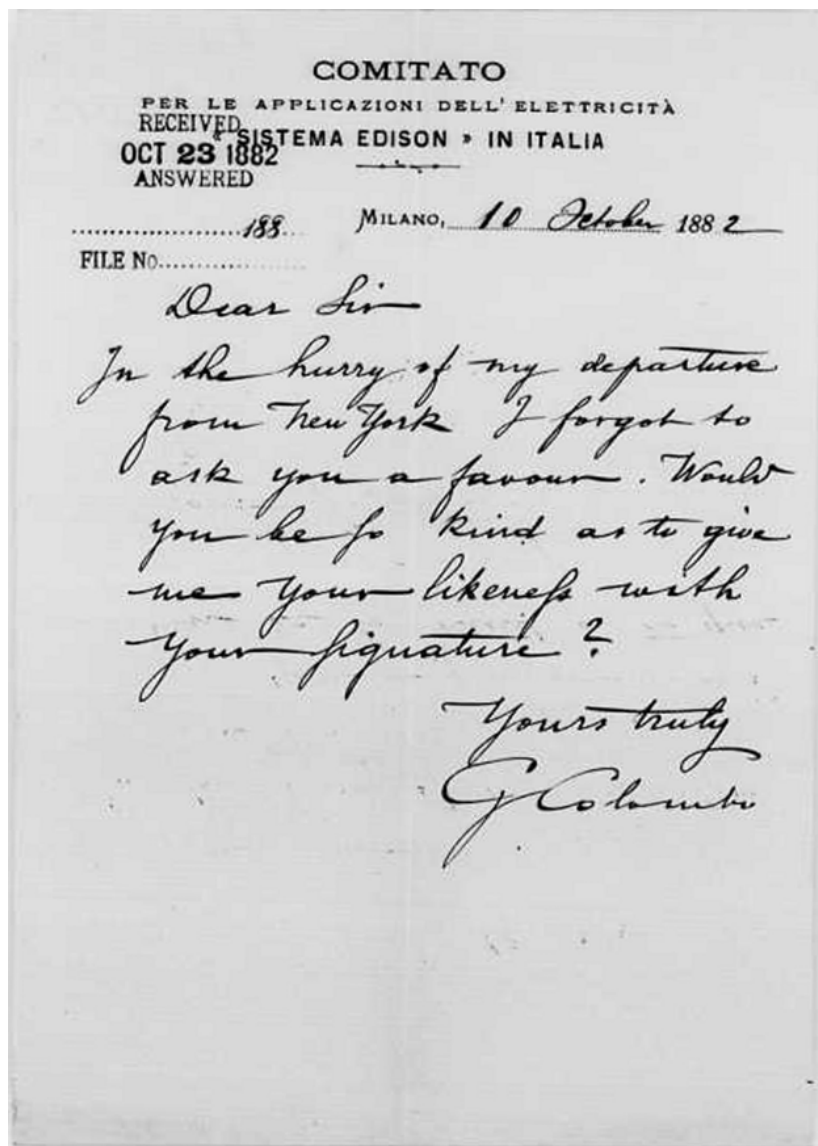 COMITATO
PER LE APPLICAZIONI DELL' ELETTRICITÀ
« SISTEMA EDISON » IN ITALIA
RECEIVED
OCT 23 1882
ANSWERED
188
FILE No
MILANO, 10 October 1882
Dear Sir
In the hurry of my departure
from New York I forgot to
ask you a favour. Would
you be so kind as to give
me your likeness with
your signature?
Yours truly
G Colombo